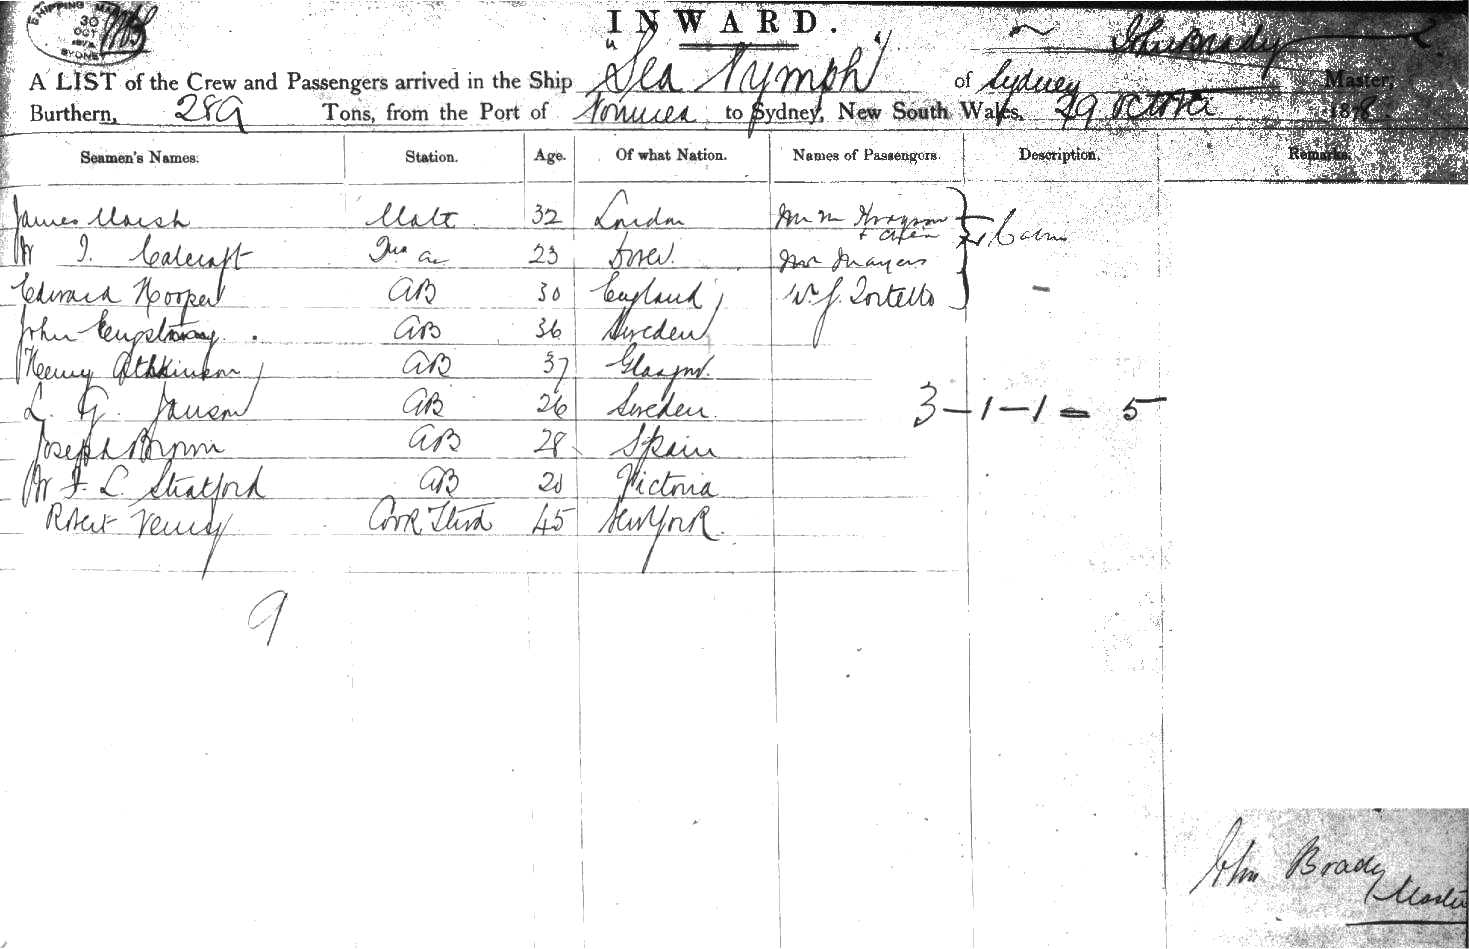 SHIPPING MA
30
OCT
SYDNEY
INWARD.
John Brady
A LIST of the Crew and Passengers arrived in the Ship "Sea Nymph" of Sydney Master,
Burthern, 289 Tons, from the Port of Noumea to Sydney, New South Wales, 29 October 1878
Seamen's Names. Station. Age. Of what Nation. Names of Passengers. Description. Remarks.
James Marsh Mate 32 London Mr
Calcraft 23 Dover. Mr Mayers Cabin
Edward Hooper AB 30 England W. J. —
John AB 36 Sweden
Henry Athkinson AB 37 Glasgow.
L. G. Janson AB 26 Sweden. 3-1-1 = 5
Joseph Brown AB 28 Spain
L. Stratford AB 20 Victoria
Robert Cook Stwd 45 New York.
9
John Brady
Master